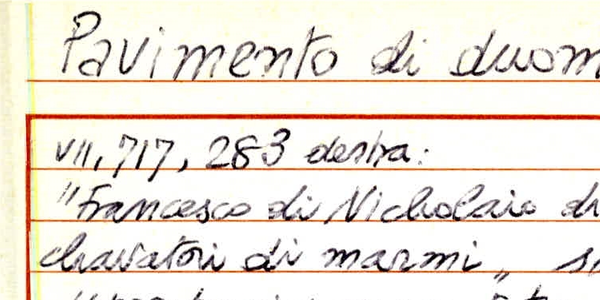 Pavimento di duom
VII, 717, 283 destra:
"Francesco di Nicholaio di
chavatori di marmi"